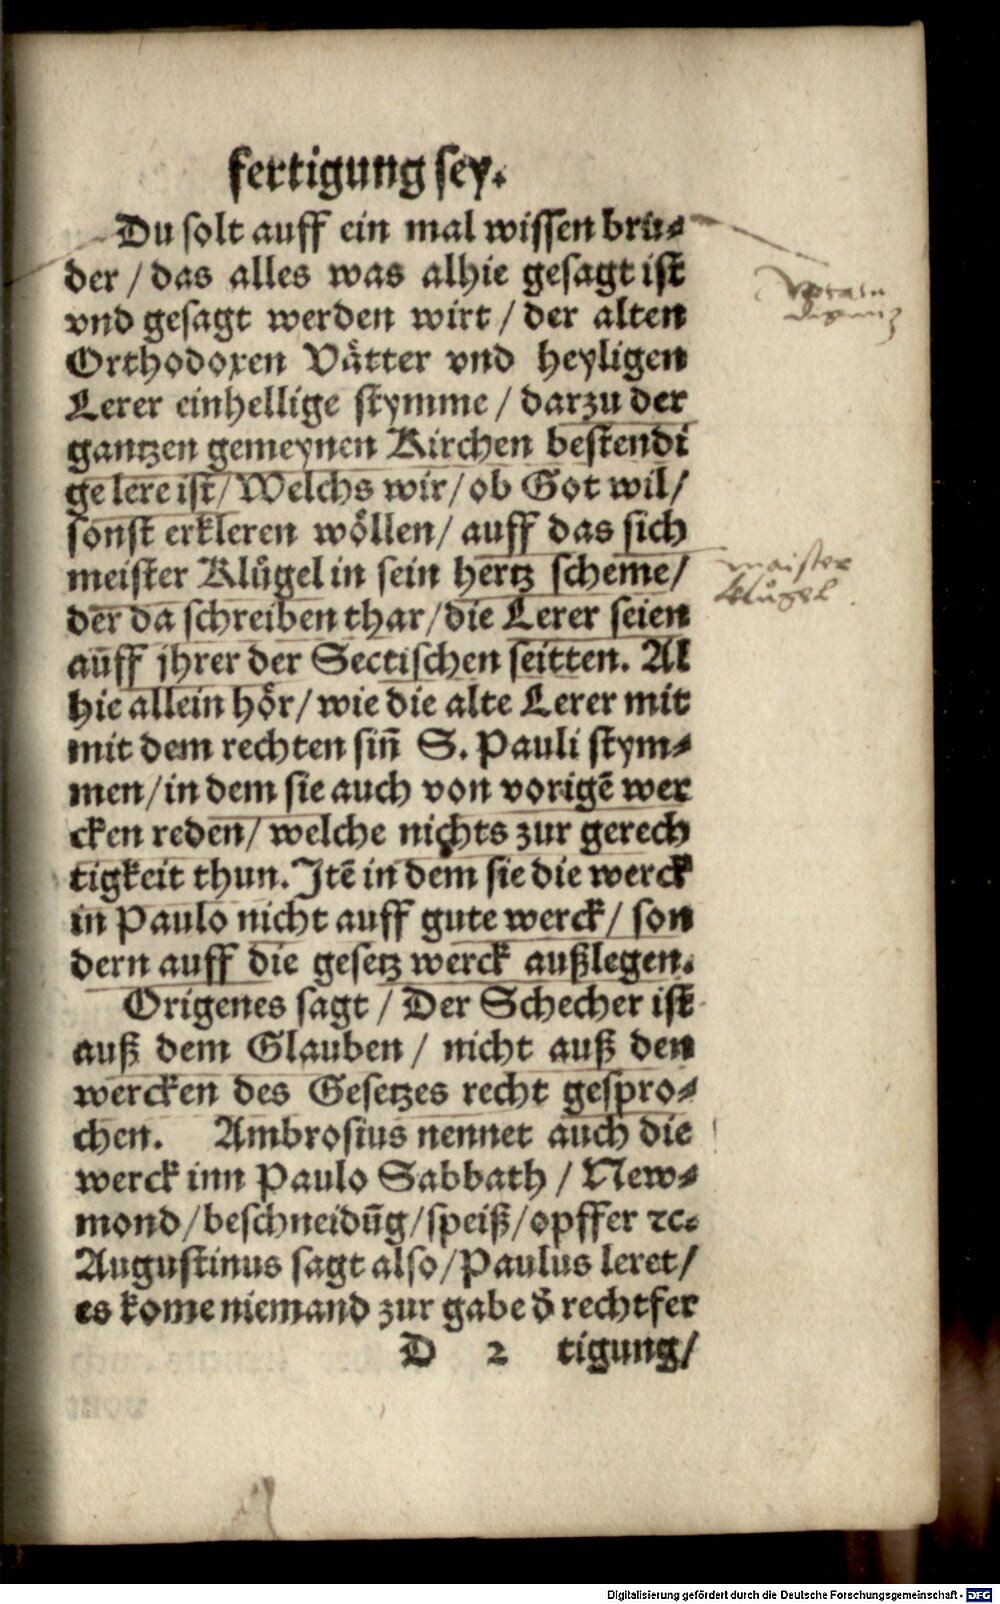 fertigung sey.
Du solt auff ein mal wissen brü⸗
der / das alles was alhie gesagt ist
vnd gesagt werden wirt / der alten
Orthodoxen Vätter vnd heyligen
Lerer einhellige stymme / darzu der
gantzen gemeynen Kirchen bestendi
ge lere ist / Welchs wir / ob Got wil /
sonst erkleren wöllen / auff das sich
meister Klügel in sein hertz scheme /
der da schreiben thar / die Lerer seien
auff jhrer der Sectischen seitten. Al
hie allein hör / wie die alte Lerer mit
mit dem rechten sin̄ S. Pauli stym⸗
men / in dem sie auch von vorigē wer
cken reden / welche nichts zur gerech
tigkeit thun. Jtē in dem sie die werck
in Paulo nicht auff gute werck / son
dern auff die gesetz werck außlegen.
Origenes sagt / Der Schecher ist
auß dem Glauben / nicht auß den
wercken des Gesetzes recht gespro⸗
chen. Ambrosius nennet auch die
werck inn Paulo Sabbath / New⸗
mond / beschneidūg / speiß / opffer ꝛc.
Augustinus sagt also / Paulus leret /
es kome niemand zur gabe d̄ rechtfer
D 2 tigung /
maister
klügel
Digitalisierung gefördert durch die Deutsche Forschungsgemeinschaft - DFG